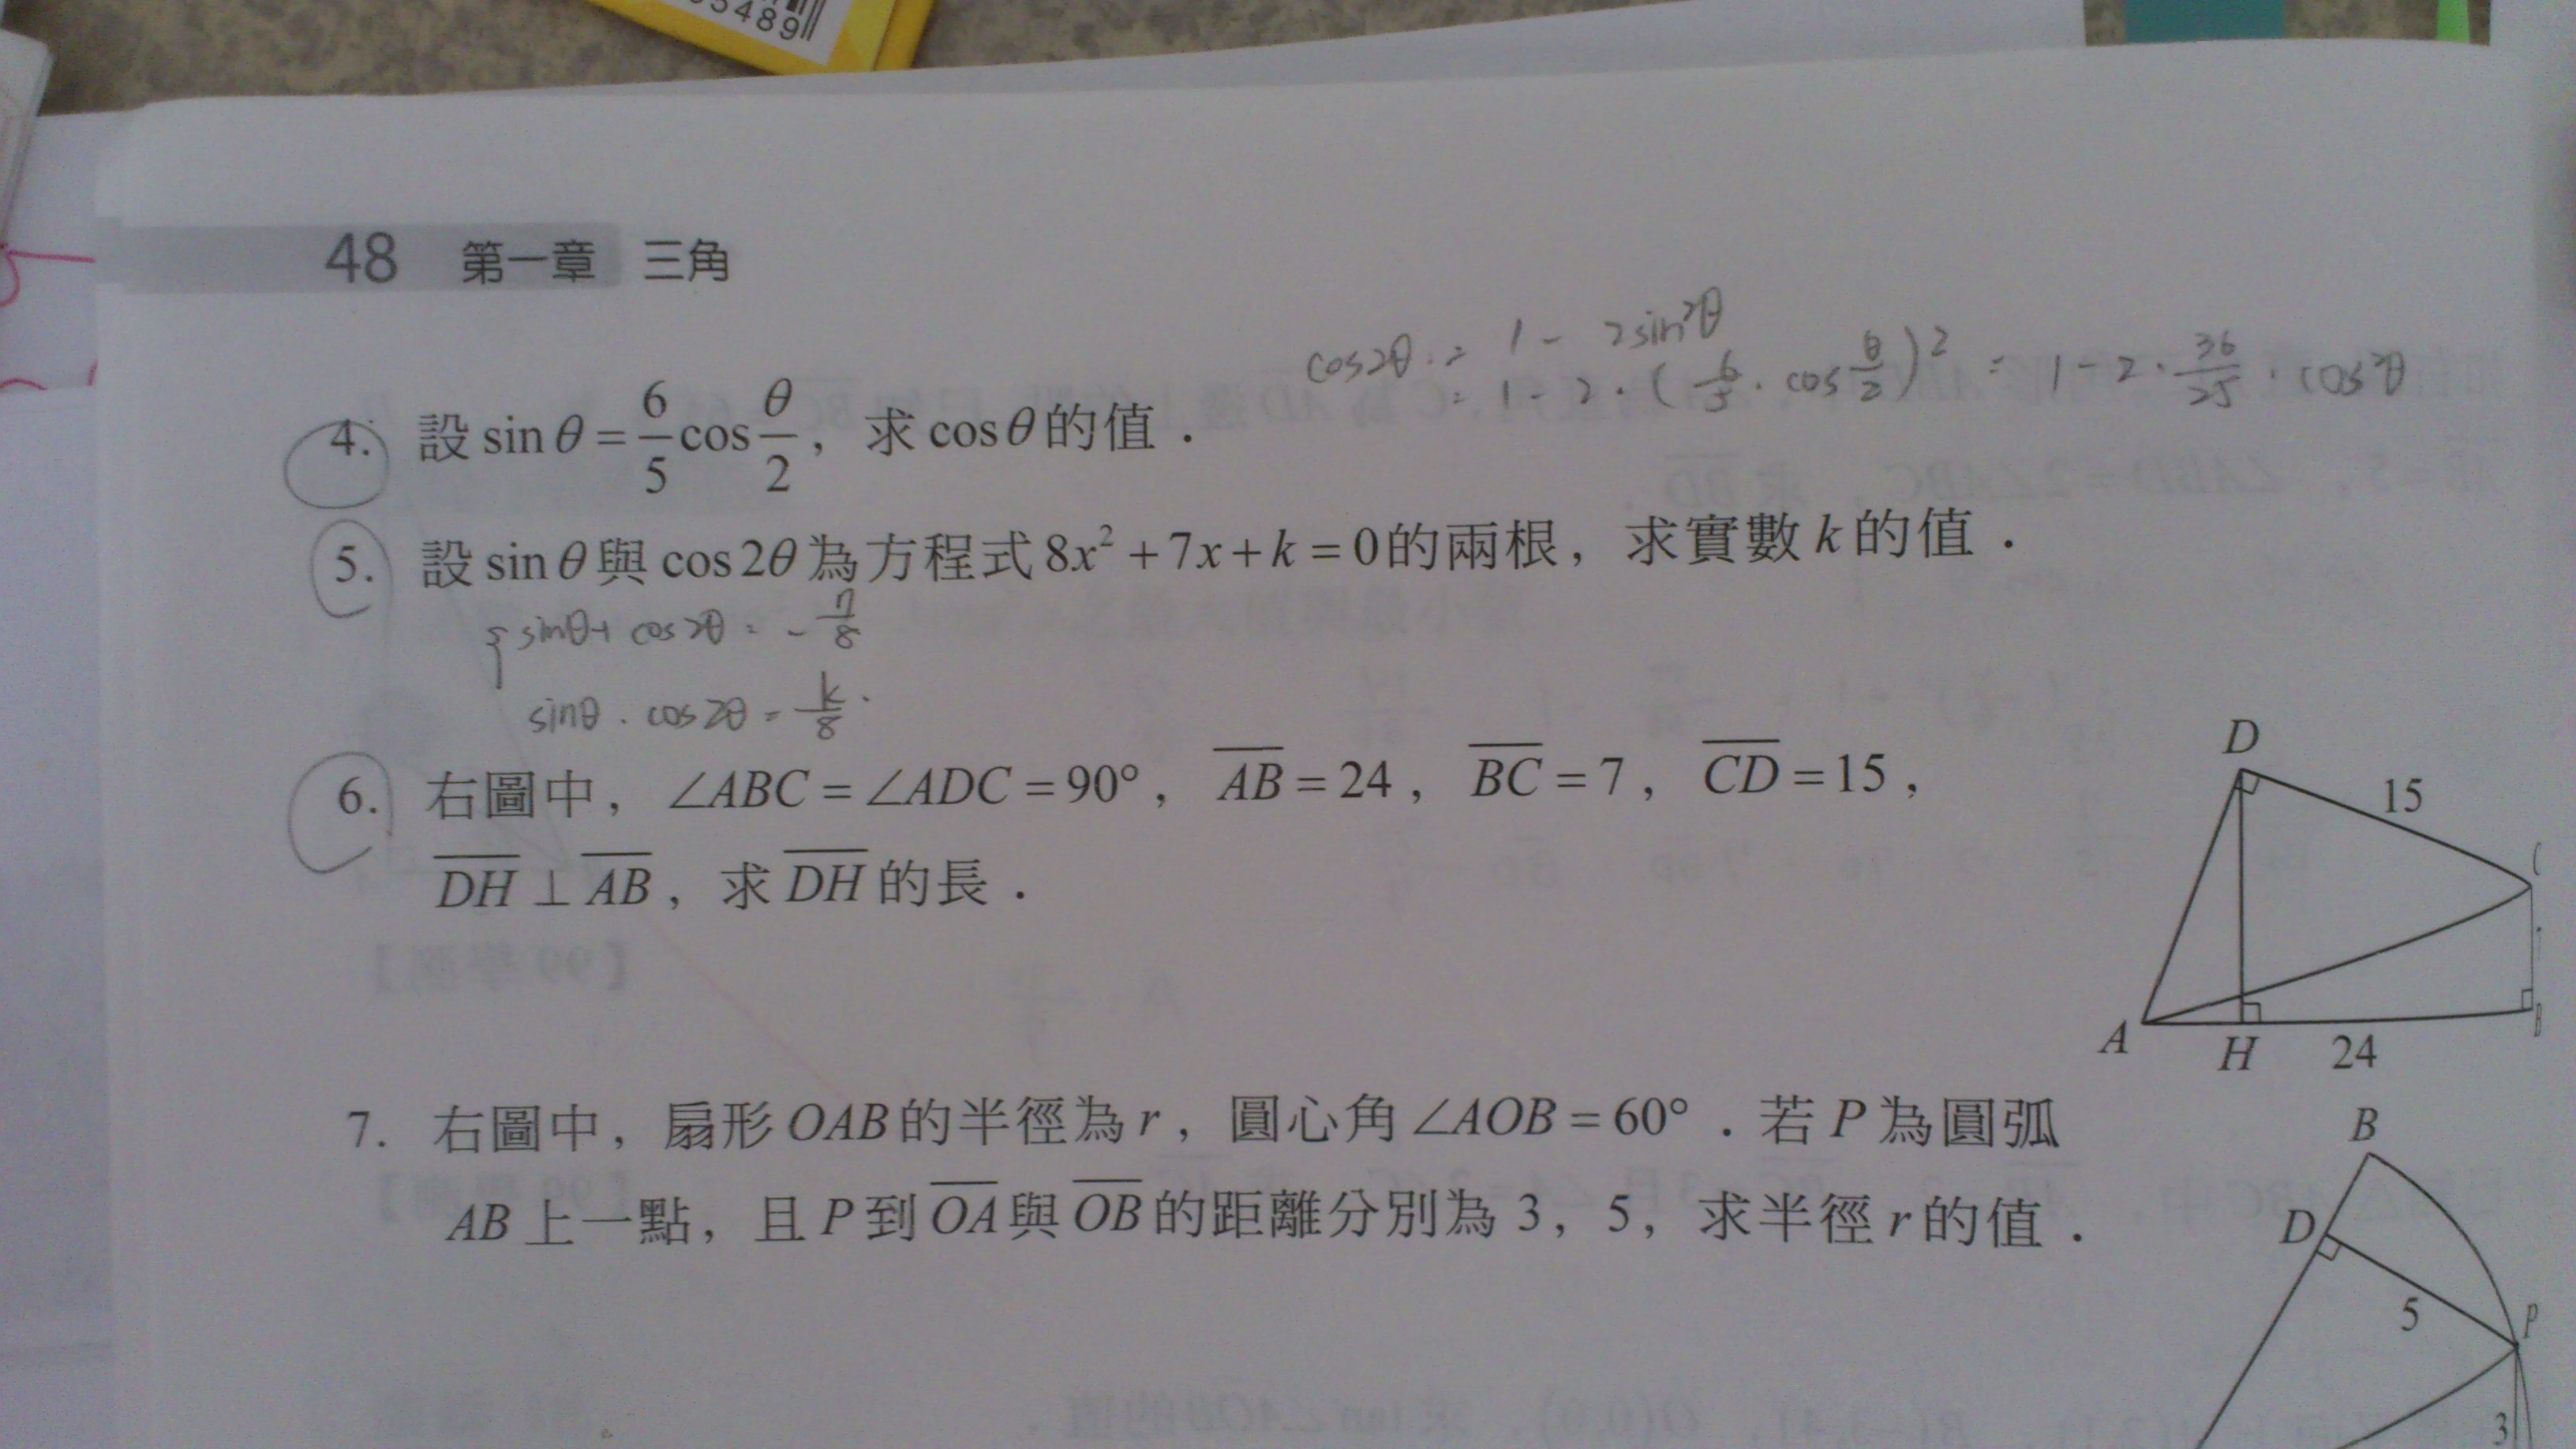 5489
48 第一章 三角
cos2θ = 1 - 2sin²θ
= 1 - 2 · (6/5 · cos θ/2)² = 1 - 2 · 36/25 · cos²θ
4. 設 sin θ = 6/5 cos θ/2, 求 cos θ 的值．
5. 設 sin θ 與 cos 2θ 為方程式 8x² + 7x + k = 0 的兩根, 求實數 k 的值．
{ sinθ + cos2θ = - 7/8
sinθ · cos2θ = k/8
6. 右圖中, ∠ABC = ∠ADC = 90°, AB = 24, BC = 7, CD = 15,
DH ⊥ AB, 求 DH 的長．
D
15
C
A
H
24
B
7. 右圖中, 扇形 OAB 的半徑為 r, 圓心角 ∠AOB = 60°．若 P 為圓弧
AB 上一點, 且 P 到 OA 與 OB 的距離分別為 3, 5, 求半徑 r 的值．
B
D
5
P
3